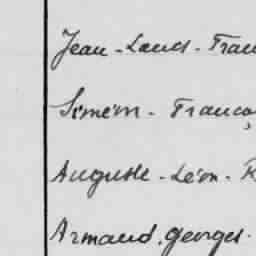 Jean-Louis-Fran
Siméon-Franço
Auguste-Léon-
Armand, Georges-